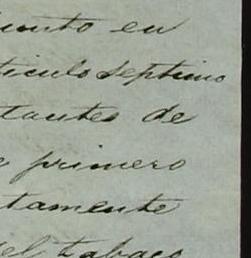 iunto en
ticulo septimo
tantes de
e primero
tamente
del tabaco